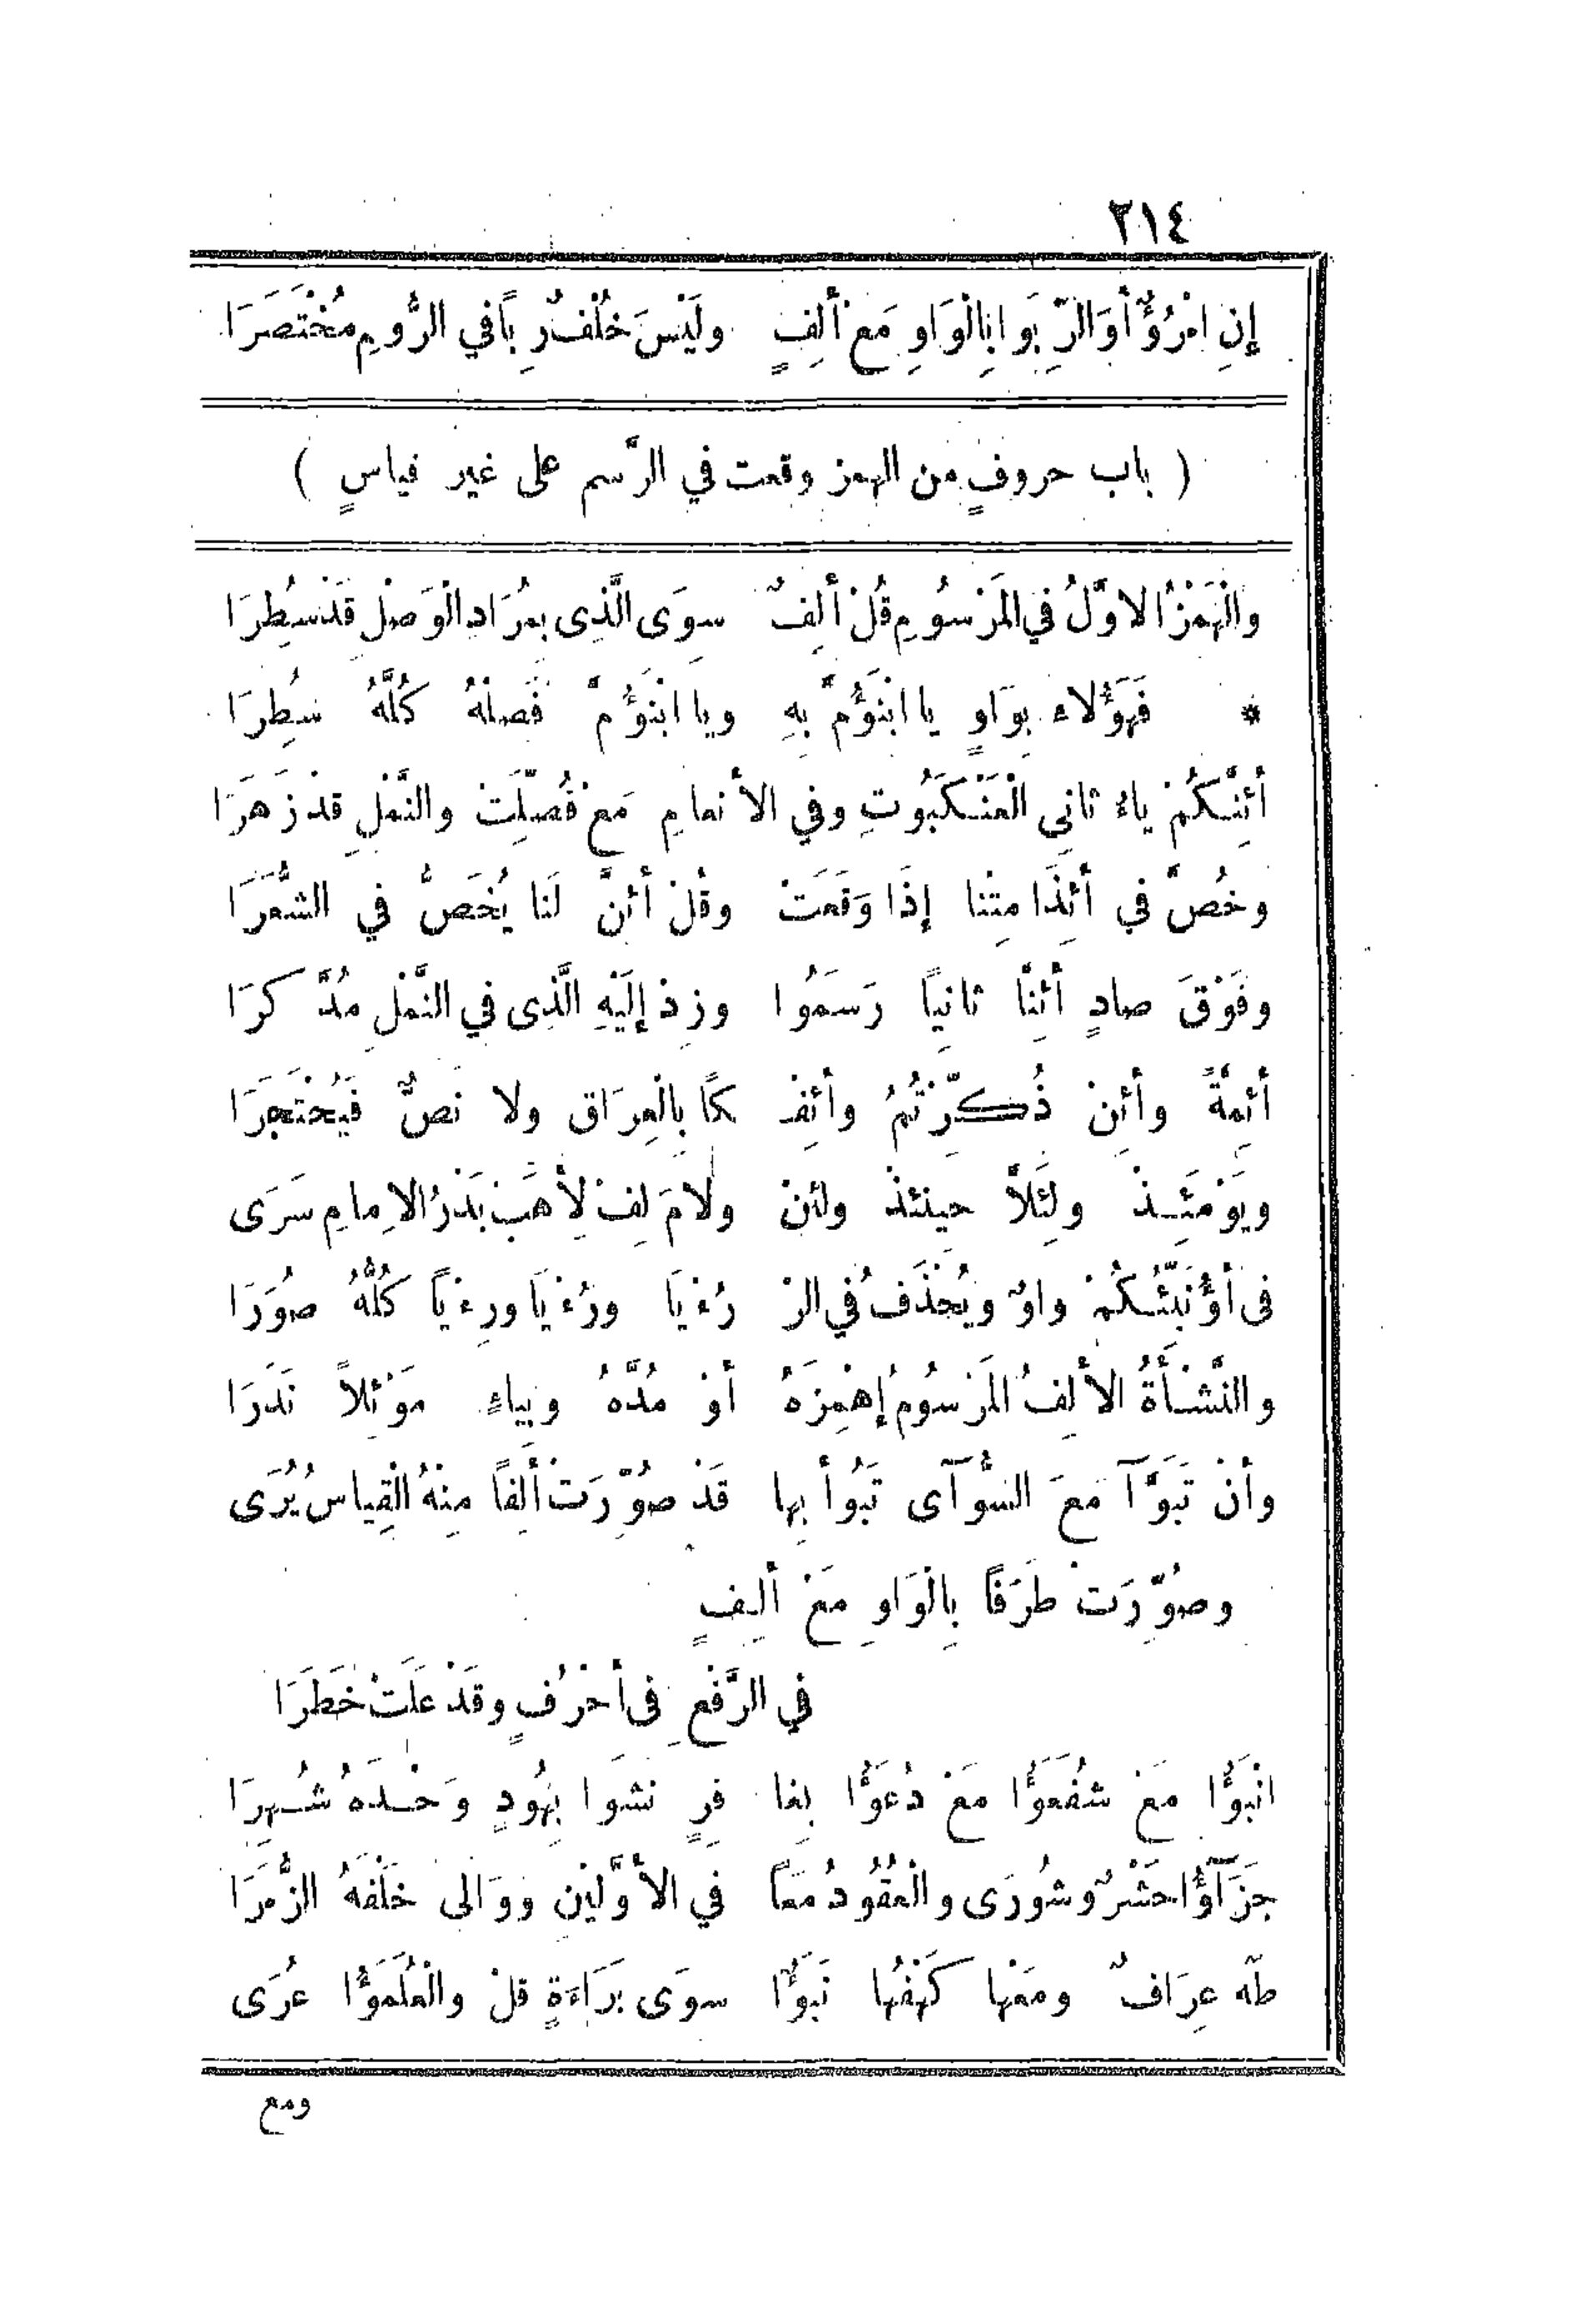 ٢١٤
إِنِ امْرُؤٌ أوَالرِّبَوا بِالْوَاوِ مَعْ ألِفٍ ولَيْسَ خُلْفُ رِباً في الرُّومِ مُخْتَصَرَا
( باب حروفٍ من الهمز وقعت في الرَّسم على غير قياسٍ )
والْهَمْزُ الاوَّلُ في المَرْسُومِ قُلْ ألِفٌ سِوَى الَّذِى بِمُرَادِ الْوَصْلِ قَدْ سُطِرَا
* فَهَؤُلاء بِوَاوٍ يا ابْنَؤُمَّ بِهِ ويا ابْنَؤُمَّ فَصِلْهُ كُلَّهُ سُطِرَا
أئِنَّكُمْ ياءُ ثانِي الْعَنْكَبُوتِ وفي الأنعامِ مَعْ فُصِّلَتْ والنَّمْلِ قدْ زَهَرَا
وخُصَّ في أئِذَا مِتْنا إِذَا وَقَعَتْ وقُلْ أئِنَّ لَنا يُخَصُّ في الشُّعَرَا
وفَوْقَ صادٍ أئِنَّا ثانِياً رَسَمُوا وزِدْ إِلَيْهِ الَّذِى في النَّمْلِ مُدَّكرَا
أئِمَّةً وأئِنْ ذُكِّرْتُمُ وأئِفْـ ـكًا بِالْعِرَاقِ ولا نَصٌّ فَيُحْتَجَرَا
ويَوْمَئِـذْ ولِئَلاَّ حينئذْ ولئن ولامَ لِفْ لِأَهَبْ بَدْرُ الاِمامِ سَرَى
فى أؤُنَبِّئُـكُمْ واوٌ ويُحْذَفُ في الرْ رُءْيَا ورُءْيَا ورِءْياً كُلُّهُ صُوَرَا
والنَّشْأَةُ الألِفُ المَرْسُومُ إهْمِزَهُ أوْ مُدَّهُ وبِياءٍ مَوْئلاً نَدَرَا
وأنْ تَبَوَّآ مَعَ السُّوآى تَبُوأ بِها قَدْ صُوِّرَتْ ألِفاً مِنْهُ الْقِياسُ يُرَى
وصُوِّرَتْ طَرَفاً بِالْوَاوِ مَعْ ألِفٍ
في الرَّفْعِ فى أحْرُفٍ وقَدْ عَلَتْ خَطَرَا
انْبَؤُا مَعْ شُفَعَؤُا مَعْ دُعَؤُا بِغا فِرٍ نشَوا بِهُودٍ وَحْـدَهُ شُـهِرَا
جَزَآؤُا حَشْرٌ وشُورَى والْعُقُودُ مَعاً في الأوَّلَيْنِ ووَالى خَلْفَهُ الزُّمَرَا
طَه عِرَافٌ ومَعْها كَهْفُها نَبَؤٌا سِوَى بَرَاءَةٍ قلْ والْعُلَمَؤُا عُرَى
ومع